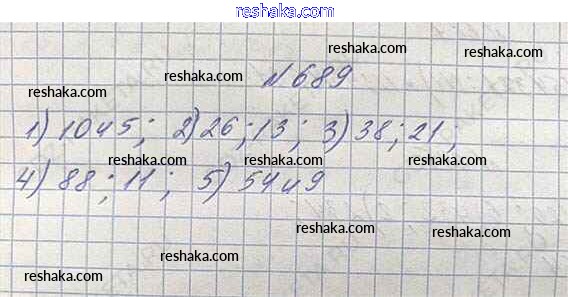 reshaka.com
reshaka.com
reshaka.com reshaka.com
№ 689
reshaka.com reshaka.com
1) 10 и 5; 2) 26; 13; 3) 38; 21;
reshaka.com reshaka.com
4) 88; 11; 5) 54 и 9
reshaka.com
reshaka.com
reshaka.com
reshaka.com
reshaka.com